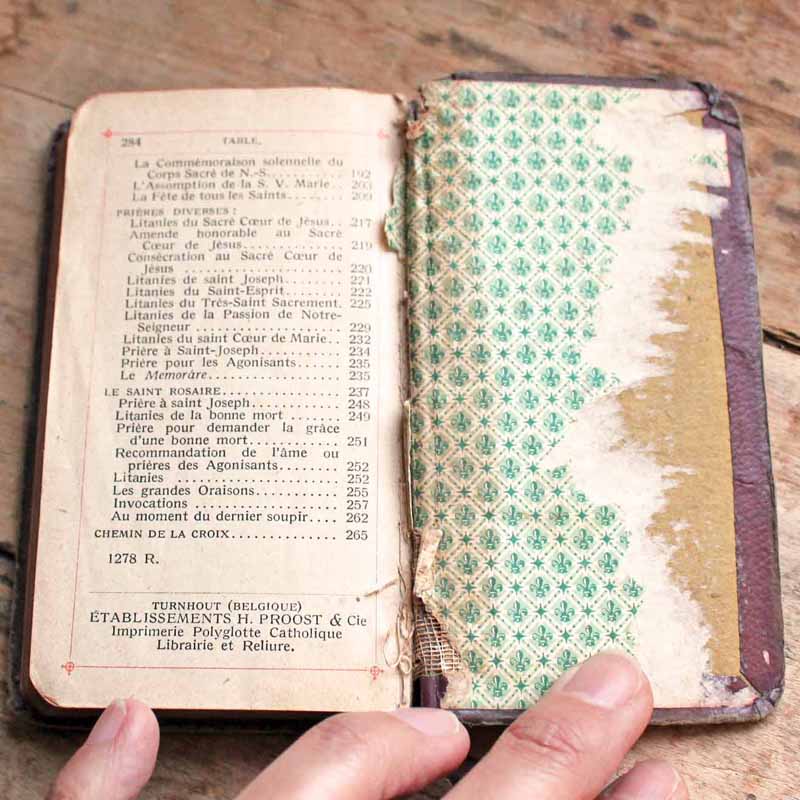 284 TABLE.
La Commémoraison solennelle du
Corps Sacré de N.-S. . . . . . . . . . . 192
L'Assomption de la S. V. Marie. . 203
La Fête de tous les Saints. . . . . . . . 209
PRIÈRES DIVERSES :
Litanies du Sacré Cœur de Jésus. . 217
Amende honorable au Sacré
Cœur de Jésus. . . . . . . . . . . . . . . 219
Consécration au Sacré Cœur de
Jésus . . . . . . . . . . . . . . . . . . . . . . 220
Litanies de saint Joseph. . . . . . . . . 221
Litanies du Saint-Esprit. . . . . . . . . 222
Litanies du Très-Saint Sacrement. 225
Litanies de la Passion de Notre-
Seigneur . . . . . . . . . . . . . . . . . . . . 229
Litanies du saint Cœur de Marie. . 232
Prière à Saint-Joseph. . . . . . . . . . . 234
Prière pour les Agonisants. . . . . . . 235
Le Memorâre. . . . . . . . . . . . . . . . . . 235
LE SAINT ROSAIRE. . . . . . . . . . . . . . . 237
Prière à saint Joseph. . . . . . . . . . . 248
Litanies de la bonne mort . . . . . . . 249
Prière pour demander la grâce
d'une bonne mort. . . . . . . . . . . . 251
Recommandation de l'âme ou
prières des Agonisants. . . . . . . . 252
Litanies . . . . . . . . . . . . . . . . . . . . . 252
Les grandes Oraisons. . . . . . . . . . . 255
Invocations . . . . . . . . . . . . . . . . . . 257
Au moment du dernier soupir. . . . 262
CHEMIN DE LA CROIX. . . . . . . . . . . . . 265
1278 R.
TURNHOUT (BELGIQUE)
ÉTABLISSEMENTS H. PROOST & Cie
Imprimerie Polyglotte Catholique
Librairie et Reliure.